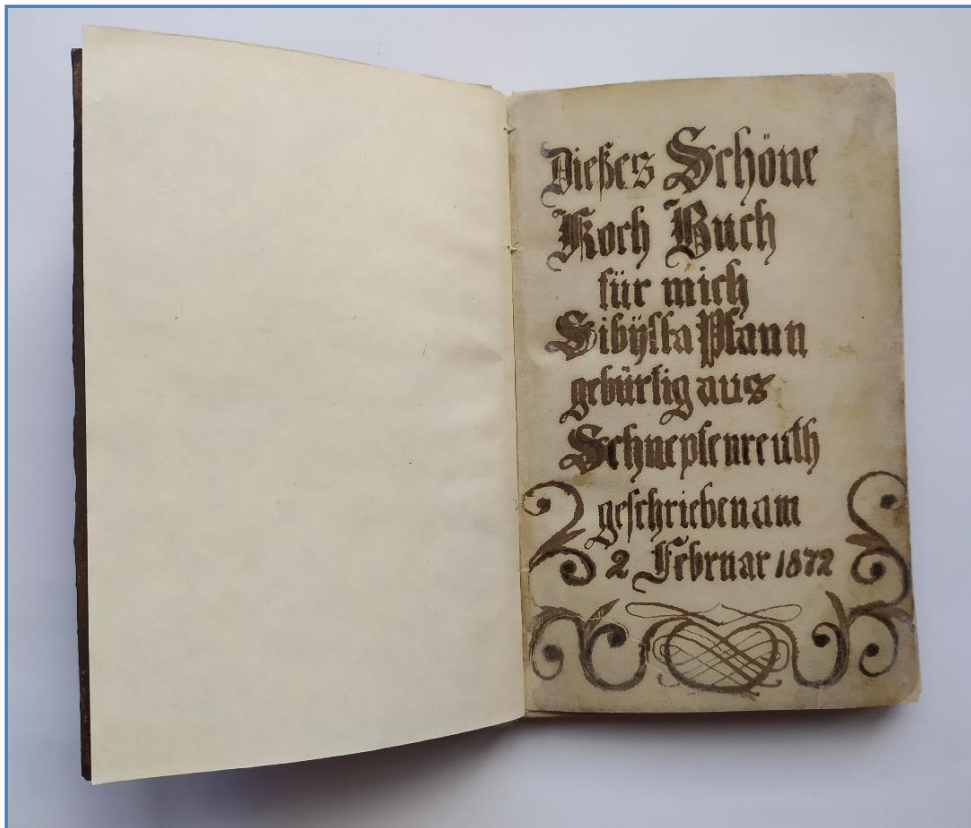 Dießes Schöne
Koch Buch
für mich
Sibÿlla Plann
gebürtig aus
Schnepfenreuth
geschrieben am
2 Februar 1872